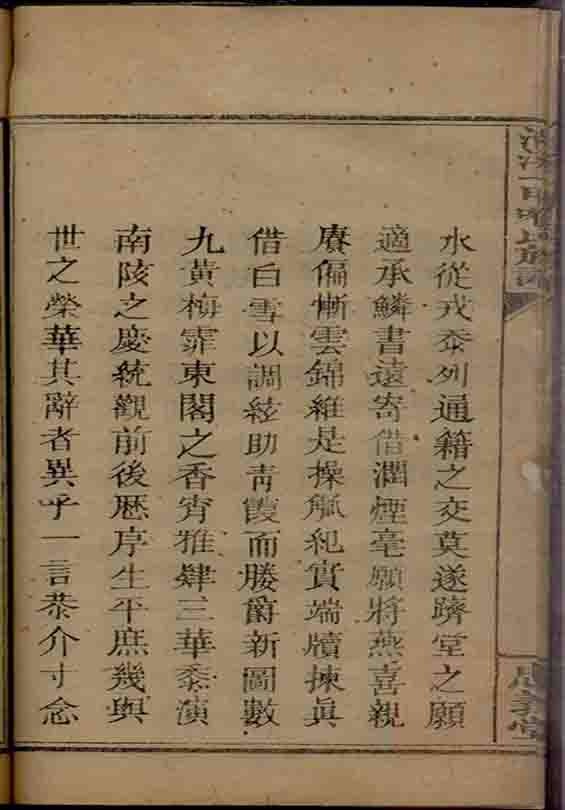 水從戎忝列通籍之交莫遂躋堂之願
適承鱗書遠寄借潤煙毫願將燕喜親
賡偏慚雲錦維是操觚紀實端牘揀眞
借白雪以調絃助青霞而媵爵新圖數
九黃梅霏東閣之香宵雅肄三華黍演
南陔之慶統觀前後厯序生平庶幾與
世之榮華其辭者異乎一言恭介寸念